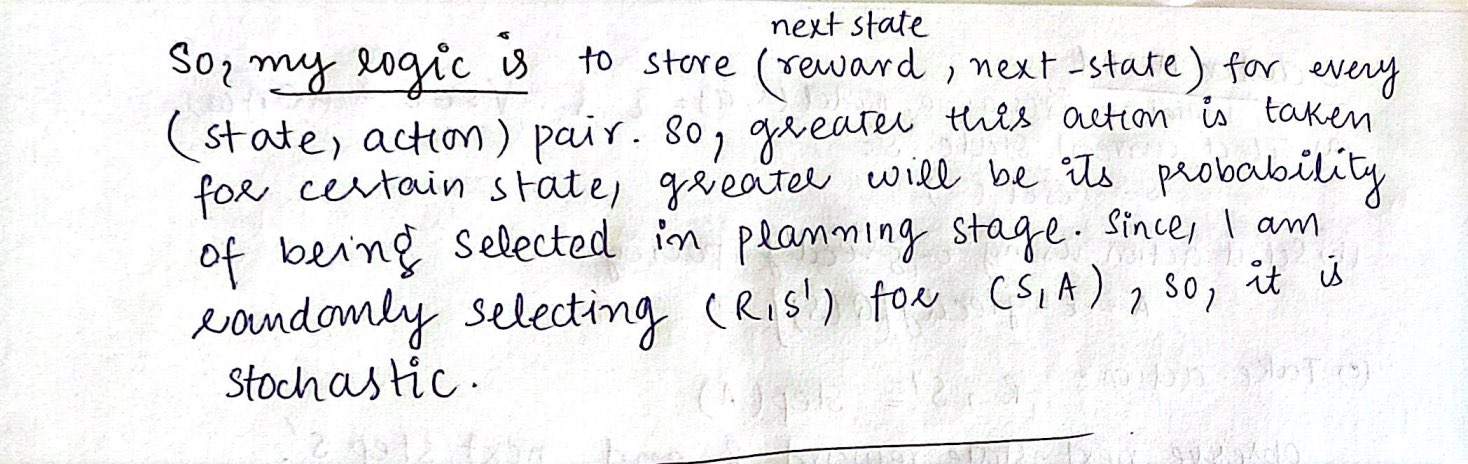 next state
So, my logic is to store (reward, next-state) for every
(state, action) pair. So, greater this action is taken
for certain state, greater will be its probability
of being selected in planning stage. Since, I am
randomly selecting (R,S') for (S,A), so, it is
stochastic.